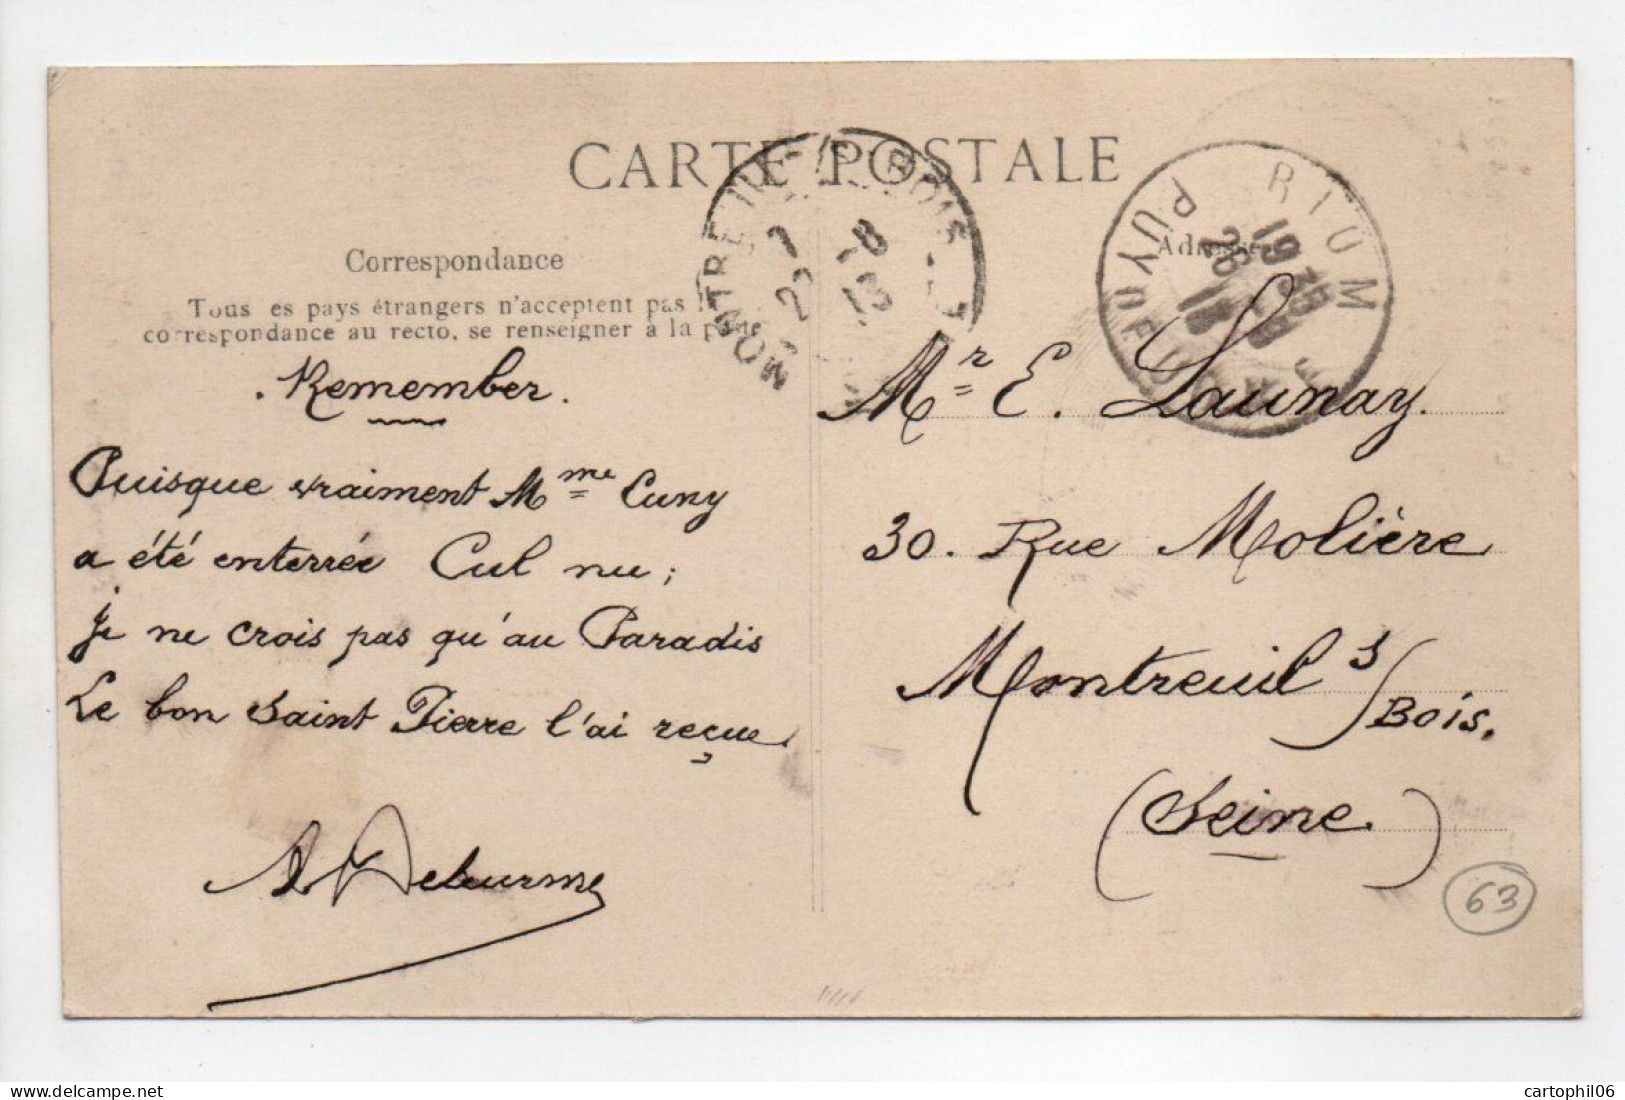 CARTE POSTALE
Correspondance
Tous es pays étrangers n'acceptent pas l
correspondance au recto, se renseigner à la poste
. Remember.
Puisque vraiment Mme Cuny
a été enterrée Cul nu ;
je ne crois pas qu'au Paradis
Le bon Saint Pierre l'ai reçue.
MONTREUIL-S-BOIS
RIOM
PUY DE DOME
Adresse
Mr E. Launay.
30. Rue Molière
Montreuil s/Bois.
(Seine)
63
cartophil06